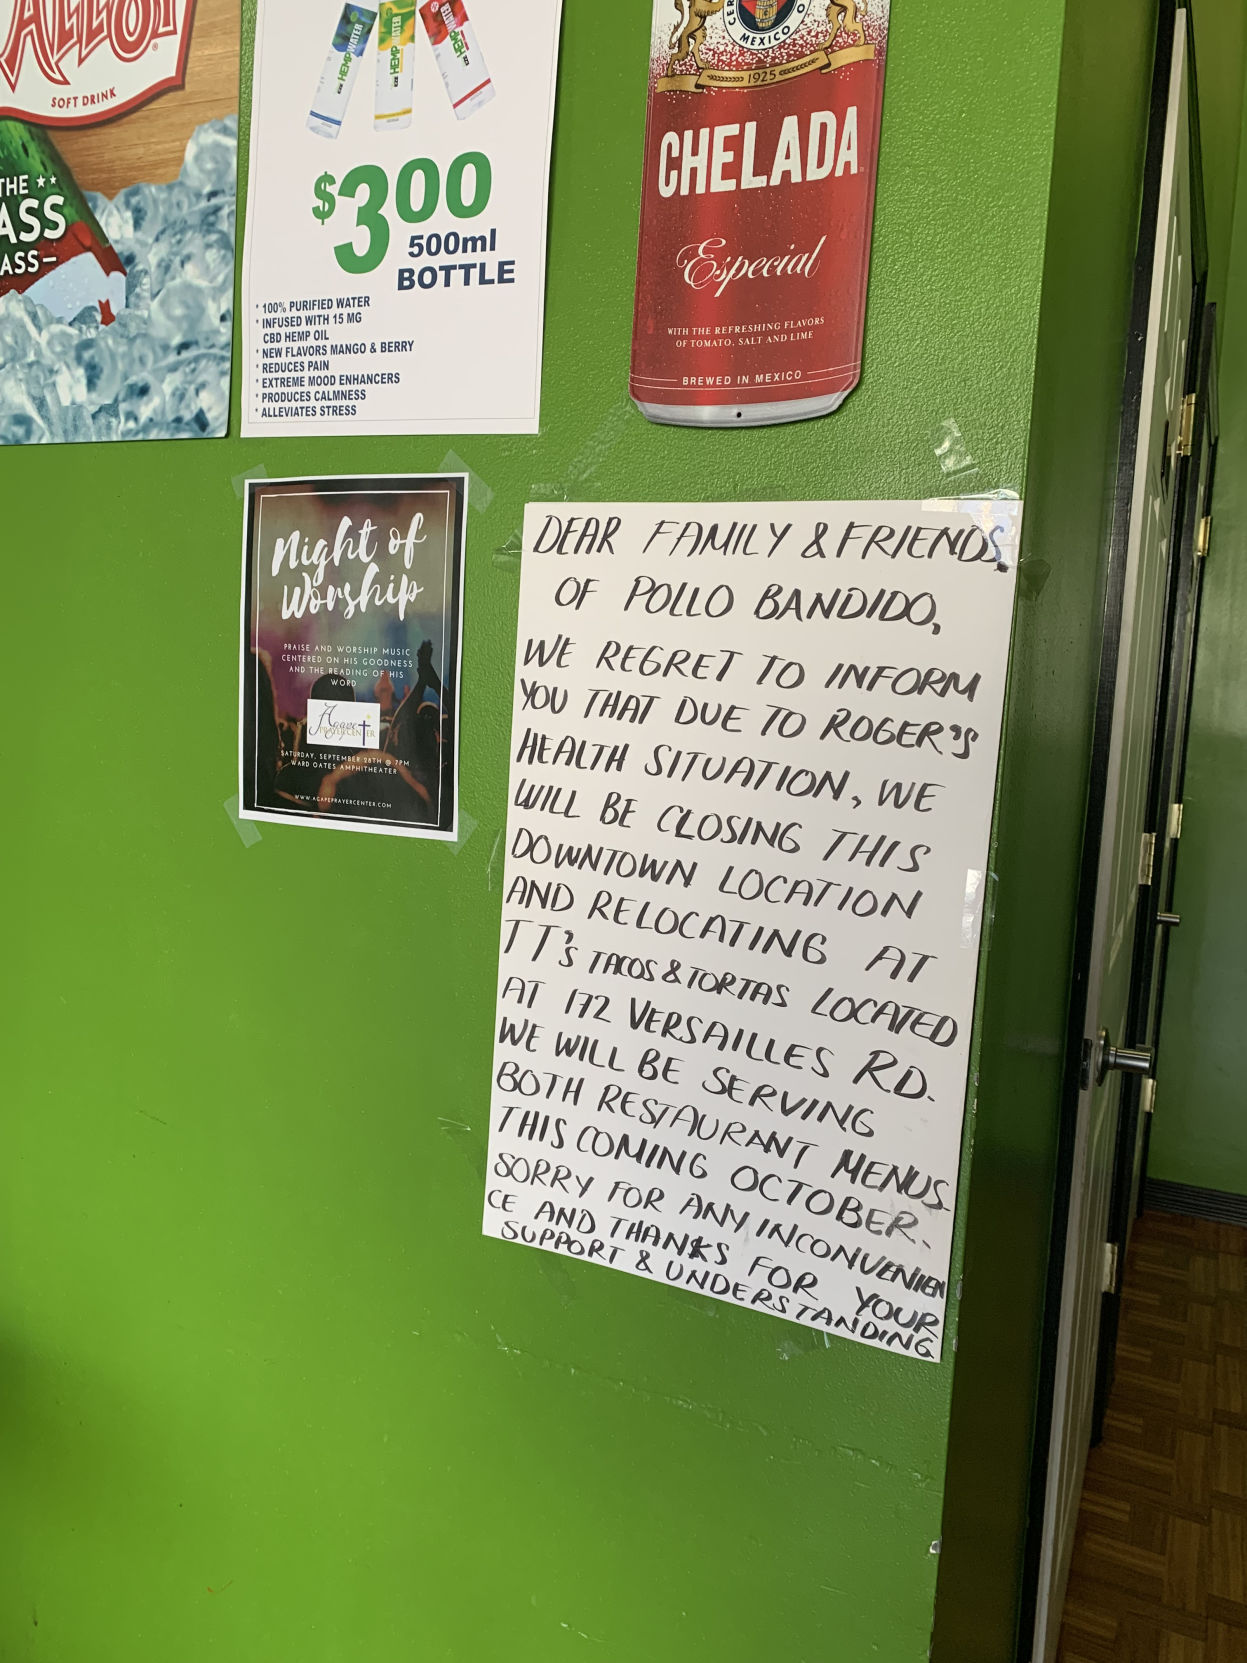 SOFT DRINK
THE
ASS
ASS
HEMP WATER
HEMP WATER
HEMP WATER
$3.00
500ml
BOTTLE
* 100% PURIFIED WATER
* INFUSED WITH 15 MG
CBD HEMP OIL
* NEW FLAVORS MANGO & BERRY
* REDUCES PAIN
* EXTREME MOOD ENHANCERS
* PRODUCES CALMNESS
* ALLEVIATES STRESS
MEXICO
1925
CHELADA
Especial
WITH THE REFRESHING FLAVORS
OF TOMATO, SALT AND LIME
BREWED IN MEXICO
Night of
Worship
PRAISE AND WORSHIP MUSIC
CENTERED ON HIS GOODNESS
AND THE READING OF HIS
WORD
Agape
PRAYER CENTER
SATURDAY, SEPTEMBER 28TH @ 7PM
WARD OATES AMPHITHEATER
WWW.AGAPEPRAYERCENTER.COM
DEAR FAMILY & FRIENDS,
OF POLLO BANDIDO,
WE REGRET TO INFORM
YOU THAT DUE TO ROGER'S
HEALTH SITUATION, WE
WILL BE CLOSING THIS
DOWNTOWN LOCATION
AND RELOCATING AT
TT'S TACOS & TORTAS LOCATED
AT 172 VERSAILLES RD.
WE WILL BE SERVING
BOTH RESTAURANT MENUS
THIS COMING OCTOBER.
SORRY FOR ANY INCONVENIEN
CE AND THANKS FOR YOUR
SUPPORT & UNDERSTANDING